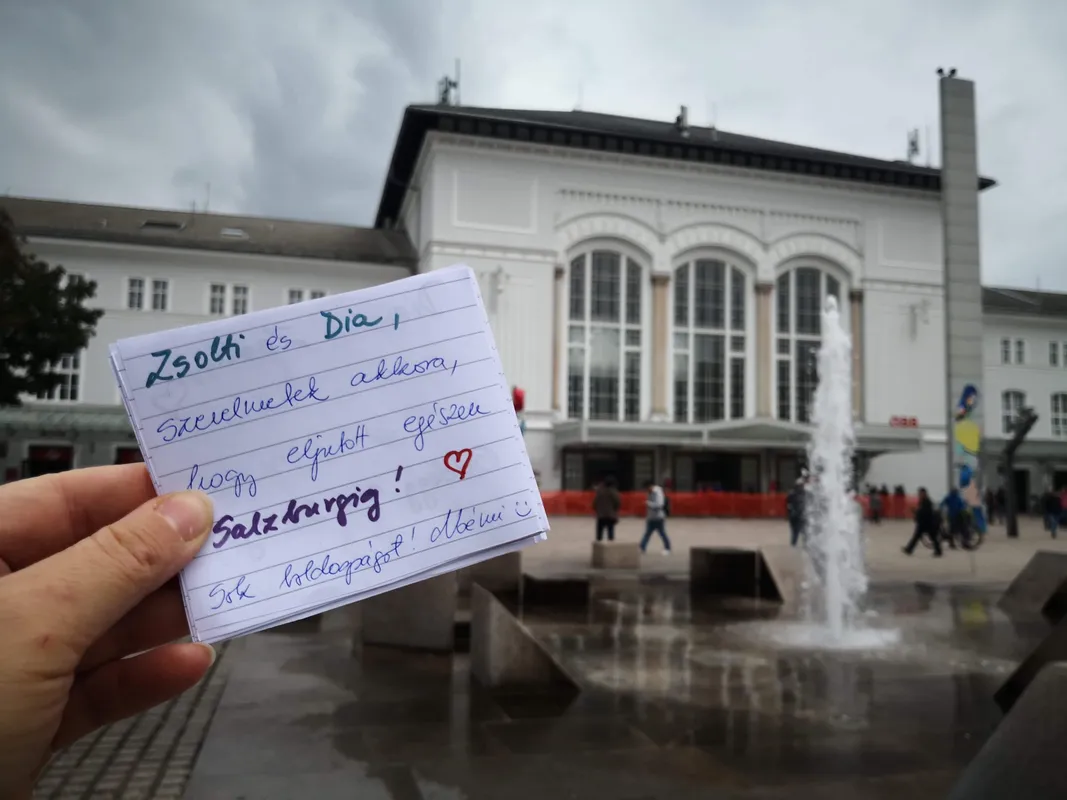 Zsolti és Dia,
szerelmetek akkora,
hogy eljutott egészen
Salzburgig! ♡
Sok boldogságot! Noémi ☺
ÖBB